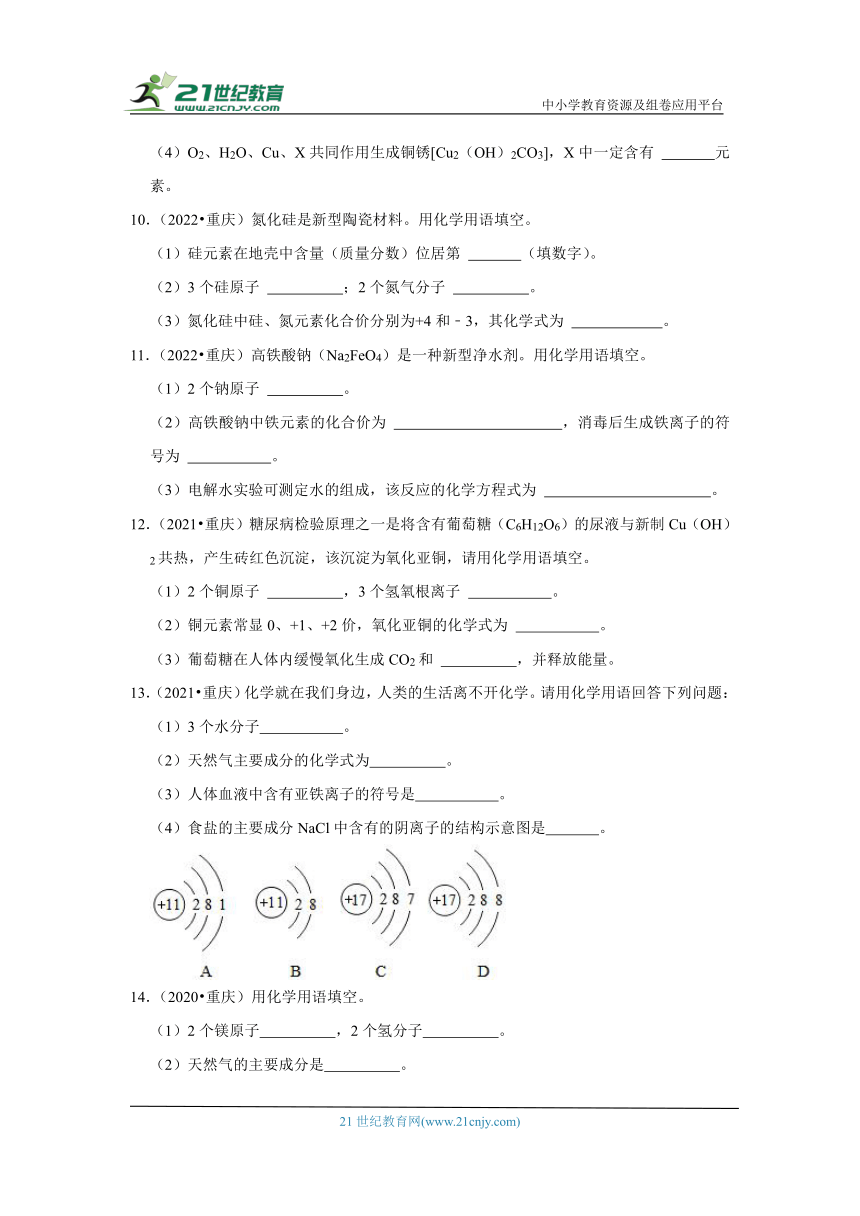 21世纪教育
WWW.21CNJY.COM
中小学教育资源及组卷应用平台
（4）O2、H2O、Cu、X共同作用生成铜锈[Cu2（OH）2CO3]，X中一定含有 元
素。
10.（2022•重庆）氮化硅是新型陶瓷材料。用化学用语填空。
（1）硅元素在地壳中含量（质量分数）位居第 （填数字）。
（2）3个硅原子 ；2个氮气分子 。
（3）氮化硅中硅、氮元素化合价分别为+4和﹣3，其化学式为 。
11.（2022•重庆）高铁酸钠（Na2FeO4）是一种新型净水剂。用化学用语填空。
（1）2个钠原子 。
（2）高铁酸钠中铁元素的化合价为 ，消毒后生成铁离子的符
号为 。
（3）电解水实验可测定水的组成，该反应的化学方程式为 。
12.（2021•重庆）糖尿病检验原理之一是将含有葡萄糖（C6H12O6）的尿液与新制Cu（OH）
2共热，产生砖红色沉淀，该沉淀为氧化亚铜，请用化学用语填空。
（1）2个铜原子 ，3个氢氧根离子 。
（2）铜元素常显0、+1、+2价，氧化亚铜的化学式为 。
（3）葡萄糖在人体内缓慢氧化生成CO2和 ，并释放能量。
13.（2021•重庆）化学就在我们身边，人类的生活离不开化学。请用化学用语回答下列问题：
（1）3个水分子 。
（2）天然气主要成分的化学式为 。
（3）人体血液中含有亚铁离子的符号是 。
（4）食盐的主要成分NaCl中含有的阴离子的结构示意图是 。
+11 2 8 1 +11 2 8 +17 2 8 7 +17 2 8 8
A B C D
14.（2020•重庆）用化学用语填空。
（1）2个镁原子 ，2个氢分子 。
（2）天然气的主要成分是 。
21世纪教育网(www.21cnjy.com)